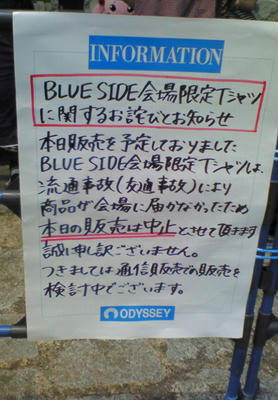 INFORMATION
BLUE SIDE会場限定Tシャツ
に関するお詫びとお知らせ
本日販売を予定しておりました
BLUE SIDE会場限定Tシャツは、
流通事故(交通事故)により
商品が会場に届かなかったため
本日の販売は中止とさせて頂きます
誠に申し訳ございません。
つきましては通信販売での販売を
検討中でございます。
ODYSSEY